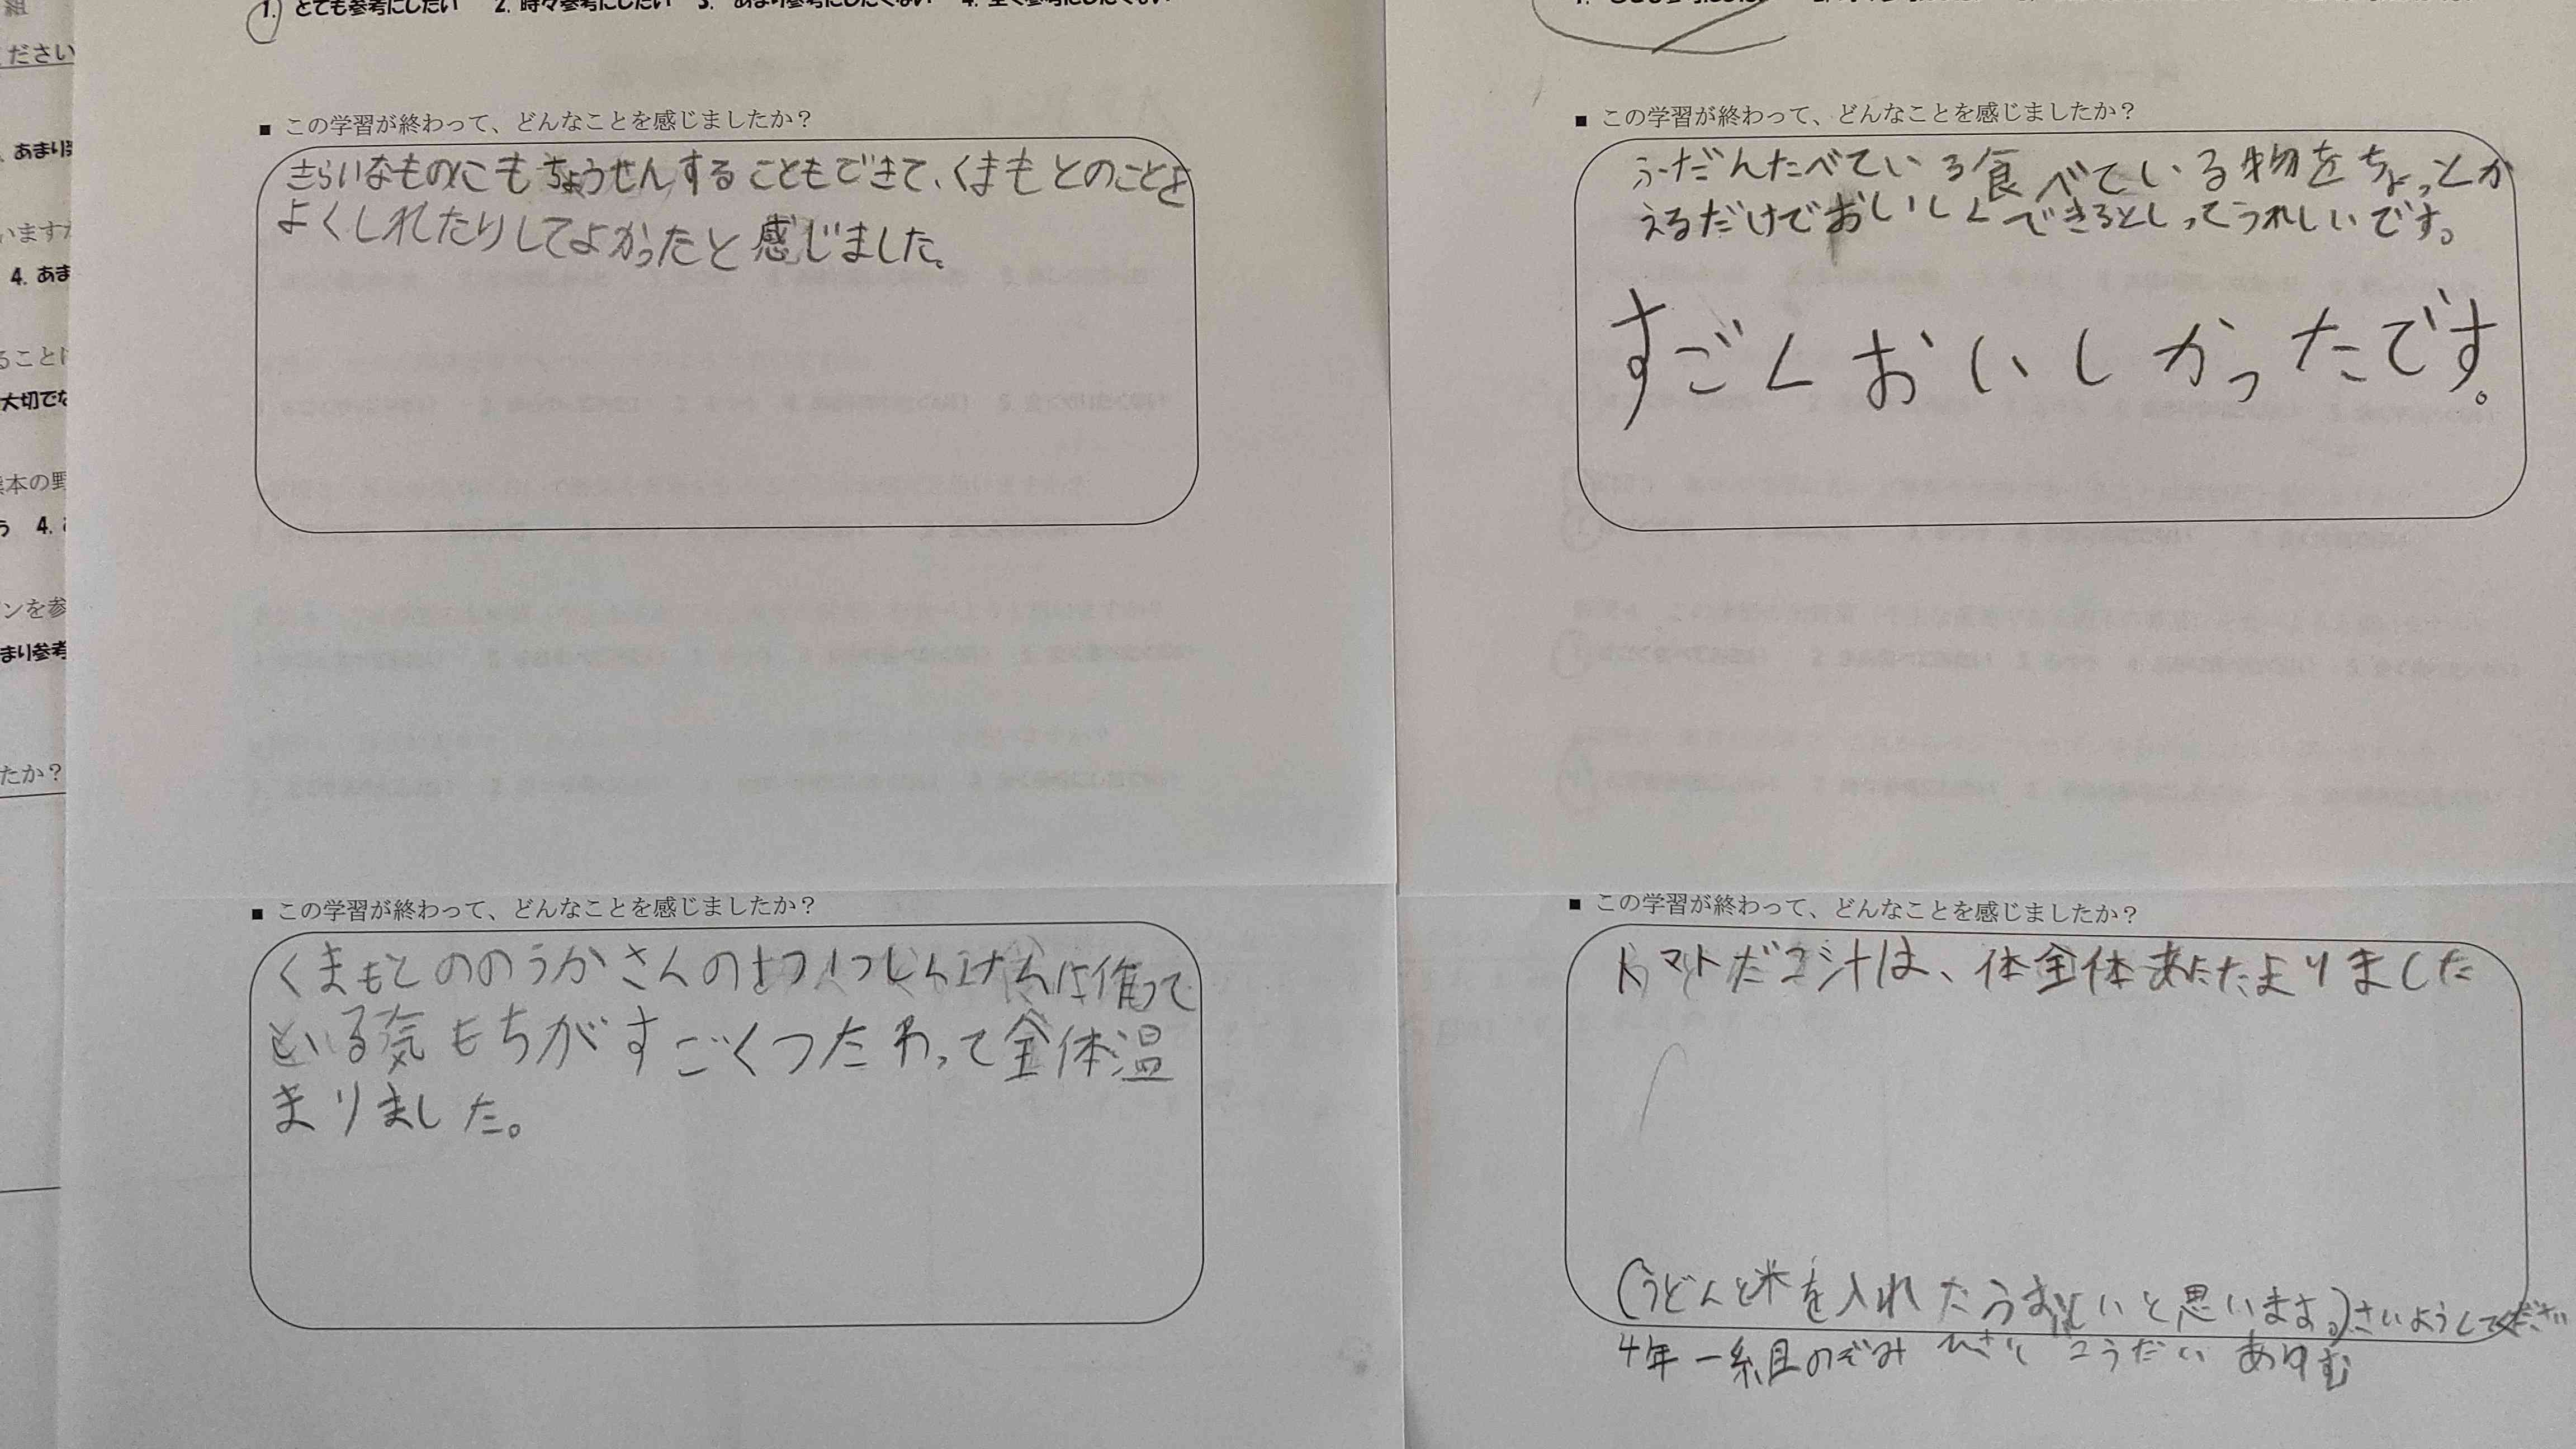 組
ください
あまり
いますか
4. あま
ることに
大切でな
熊本の野
う 4.
ンを参
まり参考
たか？
1. とても参考にしたい 2. 時々参考にしたい 3. あまり参考にしたくない 4. 全く参考にしたくない
■ この学習が終わって、どんなことを感じましたか？
きらいなものにもちょうせんすることもできて、くまもとのことを
よくしれたりしてよかったと感じました。
■ この学習が終わって、どんなことを感じましたか？
ふだんたべている食べている物をちょっとか
えるだけでおいしくできるとしってうれしいです。
すごくおいしかったです。
■ この学習が終わって、どんなことを感じましたか？
くまもとののうかさんの作って
いる気もちがすごくつたわって全体温
まりました。
■ この学習が終わって、どんなことを感じましたか？
トマトだゴ汁は、体全体あたたまりました
(うどんと米を入れたらおいしいと思います。)さいようしてくださ
4年一組のぞみ こうだい あゆむ